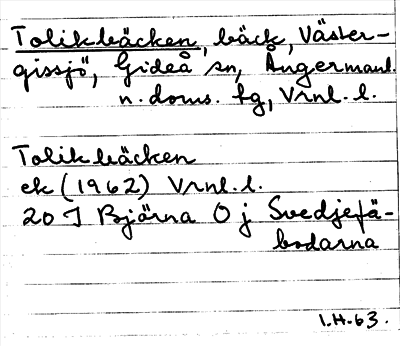 Tolikbäcken, bäck, Väster-
gissjö, Gideå sn, Ångermanl.
n. doms. fg, Vrnl. l.
Tolikbäcken
ek (1962) Vrnl. l.
20 I Björna O j Svedjefä-
bodarna
I.H.63.